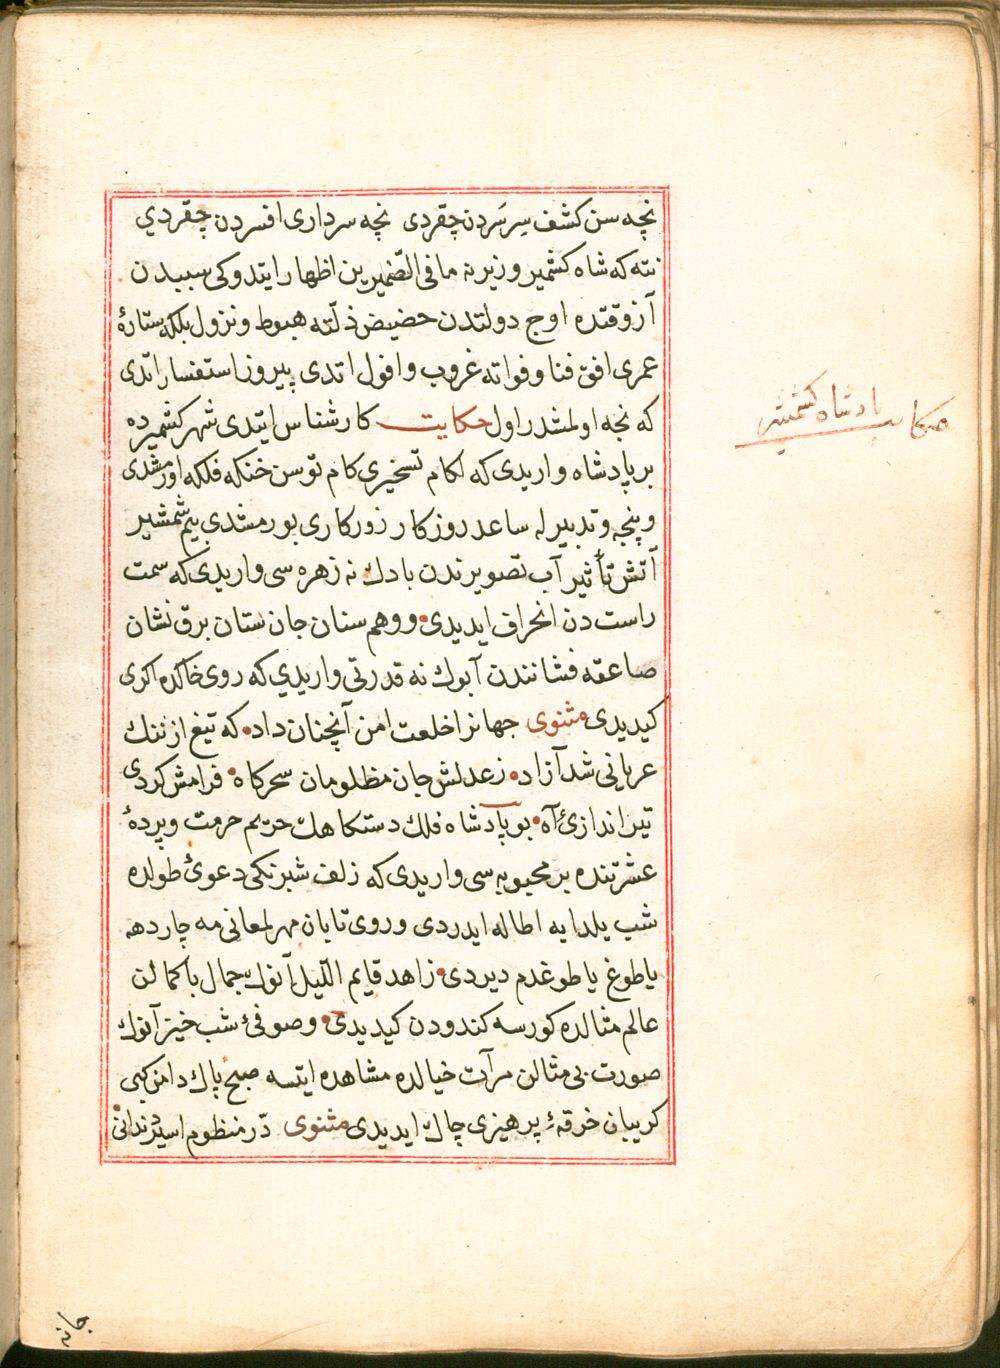 نیچه سن کشف سر سردن چقردی نیچه سرداری افسردن چقردی
نته که شاه کشمیر وزیرنه ما فی الضمیرین اظهار ایتدوکی سببدن
آز وقتده اوج دولتدن حضیض ذلّته هبوط و نزول بلکه ستارهٔ
عمری افق فنا و فواته غروب و افول اتدی پیروز استفسار اتدی
که نجه اولمشدر اول حکایت کارشناس ایتدی شهر کشمیرده
بر پادشاه واریدی که لکام تسخیری کام توسن خنکه فلکه اورمشدی
و پنجه و تدبیرله ساعد روزکار زورکاری بورمشدی بیم شمشیر
آتش تأثیر آب تصویرندن بادك نه زهره سی واریدی که سمت
راست دن انحراف ایدیدی و وهم سنان جان ستان برق نشان
صاعقه فشانندن آبوك نه قدرتی واریدی که روی خاکده اکری
کیدیدی مثنوی جهانرا خلعت امن آنچنان داد که تیغ از ننك
عریانی شد آزاد ز عدلش جان مظلومان سحرکاه فرامش کردی
تیر اندازیٔ آه بو پادشاه فلك دستکاهك حریم حرمت و پردهٔ
عشرتنده بر محبوبه سی واریدی که زلف شبرنکی دعوئ طولده
شب یلدایه اطاله ایدردی و روی تابان مهر لمعانی مه چاردهه
یا طوغ یا طوغدم دیردی زاهد قایم اللیل آنوك جمال با کمالن
عالم مثالده کورسه کندودن کیدیدی و صوفیٔ شب خیز آنوك
صورت بی مثالن مرآت خیالده مشاهده ایتسه صبح پاك دامن کبی
کریبان خرقهٔ پرهیزی چاك ایدیدی مثنوی درّ منظوم اسیر دندانی
حکایت پادشاه کشمیر